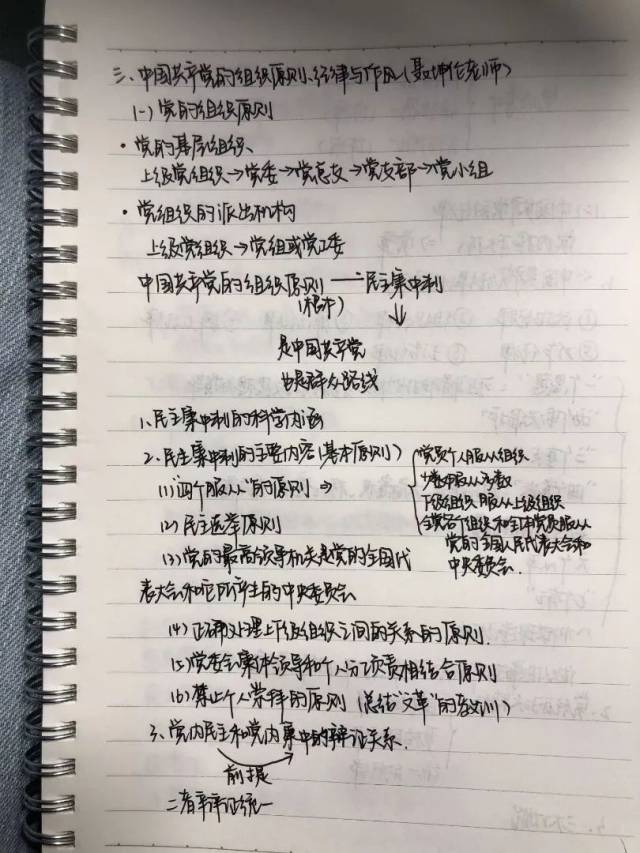 三、中国共产党的组织原则、纪律与作风(聂坤伦老师)
(一)党的组织原则
·党的基层组织、
上级党组织→党委→党总支→党支部→党小组
·党组织的派出机构
上级党组织→党组或党工委
中国共产党的组织原则——民主集中制
(根本)
是中国共产党
也是群众路线
1、民主集中制的科学内涵
2、民主集中制的主要内容(基本原则)
(1)"四个服从"的原则⇒
党员个人服从组织
少数服从多数
下级组织服从上级组织
全党各个组织和全体党员服从
党的全国人民代表大会和
中央委员会.
(2)民主选举原则
(3)党的最高领导机关是党的全国代
表大会和它所产生的中央委员会
(4)正确处理上下级组织之间的关系的原则.
(5)党委会集体领导和个人分工负责相结合原则
(6)禁止个人崇拜的原则(总结"文革"的教训)
3、党内民主和党内集中的辩证关系.
前提
二者辩证统一